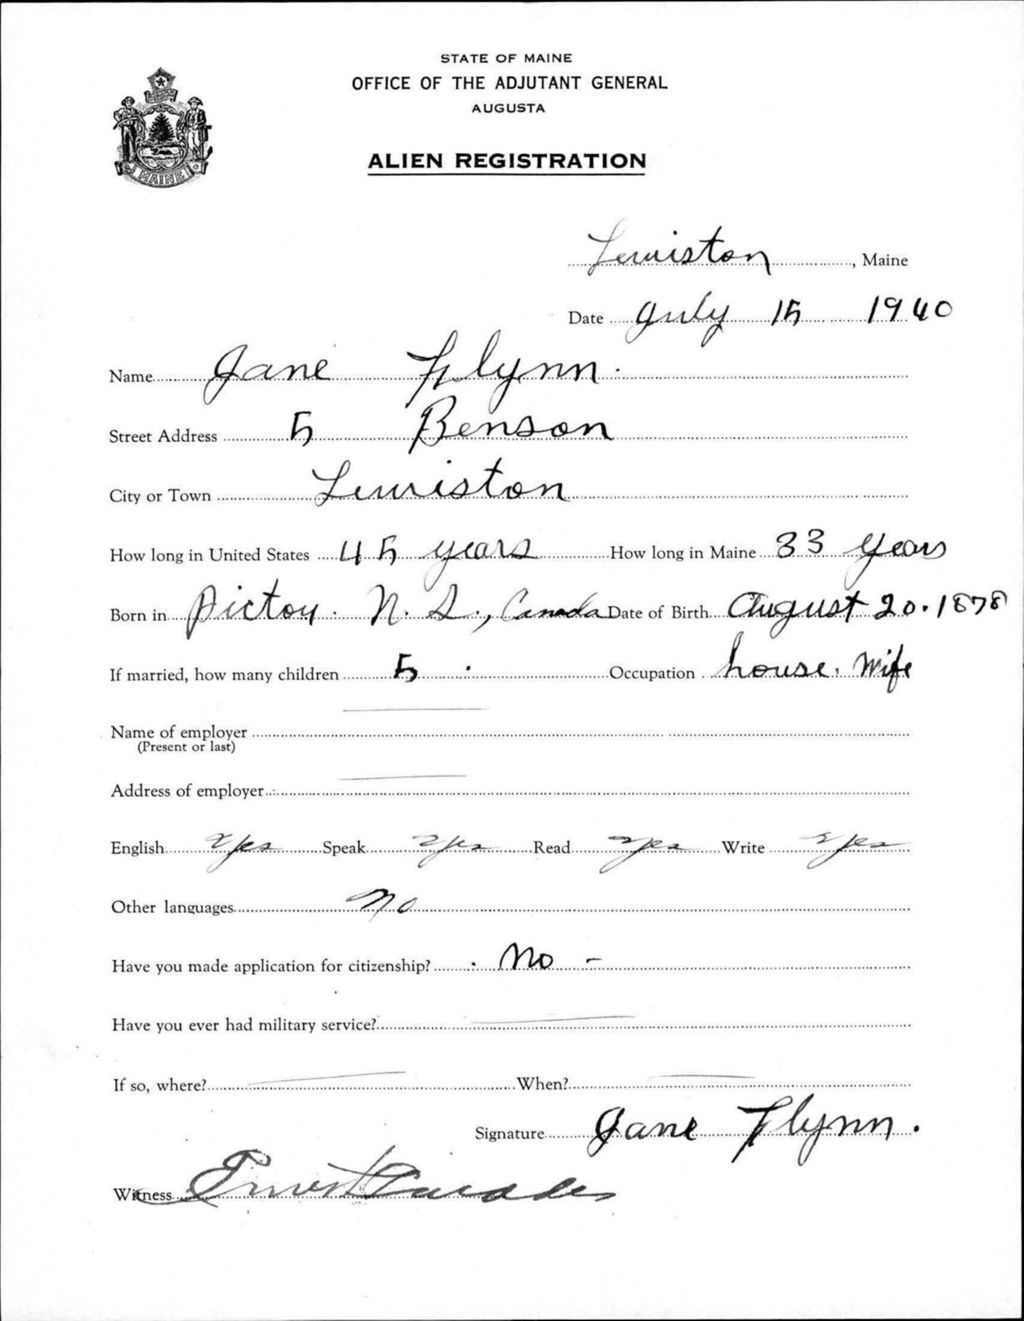 STATE OF MAINE
OFFICE OF THE ADJUTANT GENERAL
AUGUSTA
ALIEN REGISTRATION
MAINE
Lewiston, Maine
Date July 15 1940
Name Jane Flynn.
Street Address 5 Benson
City or Town Lewiston
How long in United States 45 years How long in Maine 33 years
Born in Pictou. N. S., Canada Date of Birth August 20. 1878
If married, how many children 5. Occupation house. Wife
Name of employer
(Present or last)
Address of employer
English Yes Speak Yes Read Yes Write Yes
Other languages No
Have you made application for citizenship? No -
Have you ever had military service?
If so, where? When?
Signature Jane Flynn.
Witness Ernest